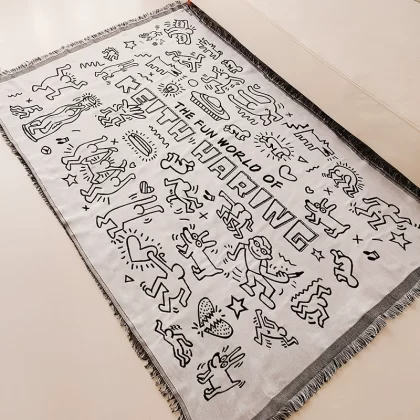 THE FUN WORLD OF
KEITH HARING